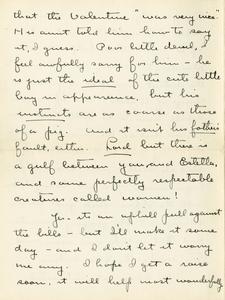 that the Valentine "was very nice."
His aunt told him how to say
it, I guess. Poor little devil, I
feel awfully sorry for him – he
is just the ideal of the cute little
boy in appearance, but his
instincts are as coarse as those
of a pig. And it isn't his father's
fault, either. Lord but there is
a gulf between you, and Estella,
and some perfectly respectable
creatures called women!
Yes - its an uphill pull against
the bills – but I'll make it some
day – and I don't let it worry
me any. I hope I get a raise
soon, it will help most wonderfully